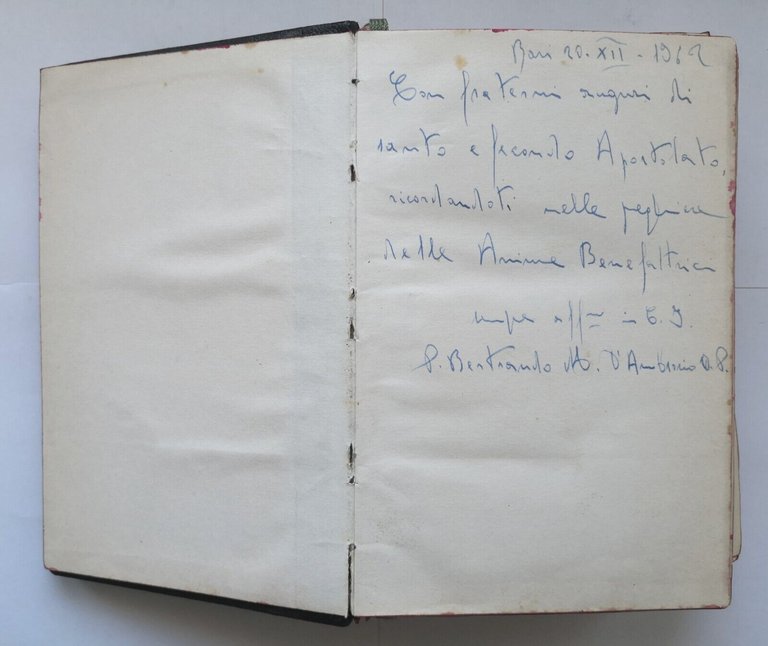 Bari 20-XII-1962
Con fraterni auguri di
santo e fecondo Apostolato,
ricordandoti nelle preghiere
delle Anime Benefattrici
aff in C. J.
P. Bertrando M. D'Ambrosio O.P.